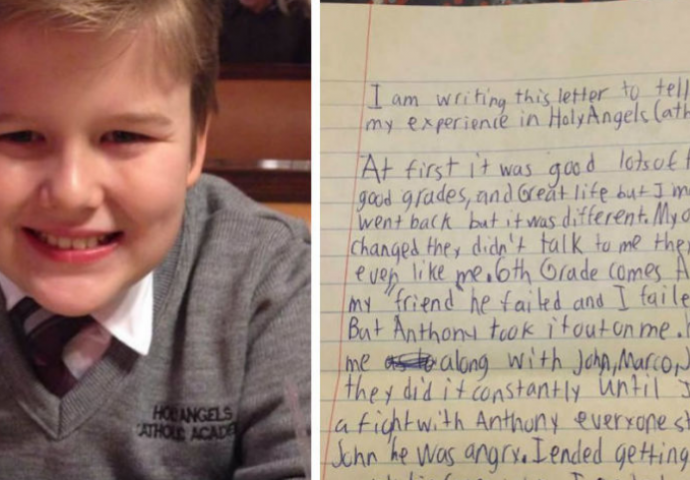 HOLY ANGELS
CATHOLIC ACADE
I am writing this letter to tell
my experience in Holy Angels Cath
At first it was good lots of
good grades, and Great life but I m
went back but it was different. My
changed they didn't talk to me they
even like me. 6th Grade comes
my "friend" he failed and I faile
But Anthony took it out on me.
me along with John, Marco, J
they did it constantly until I
a fight with Anthony everyone st
John he was angry. I ended getting